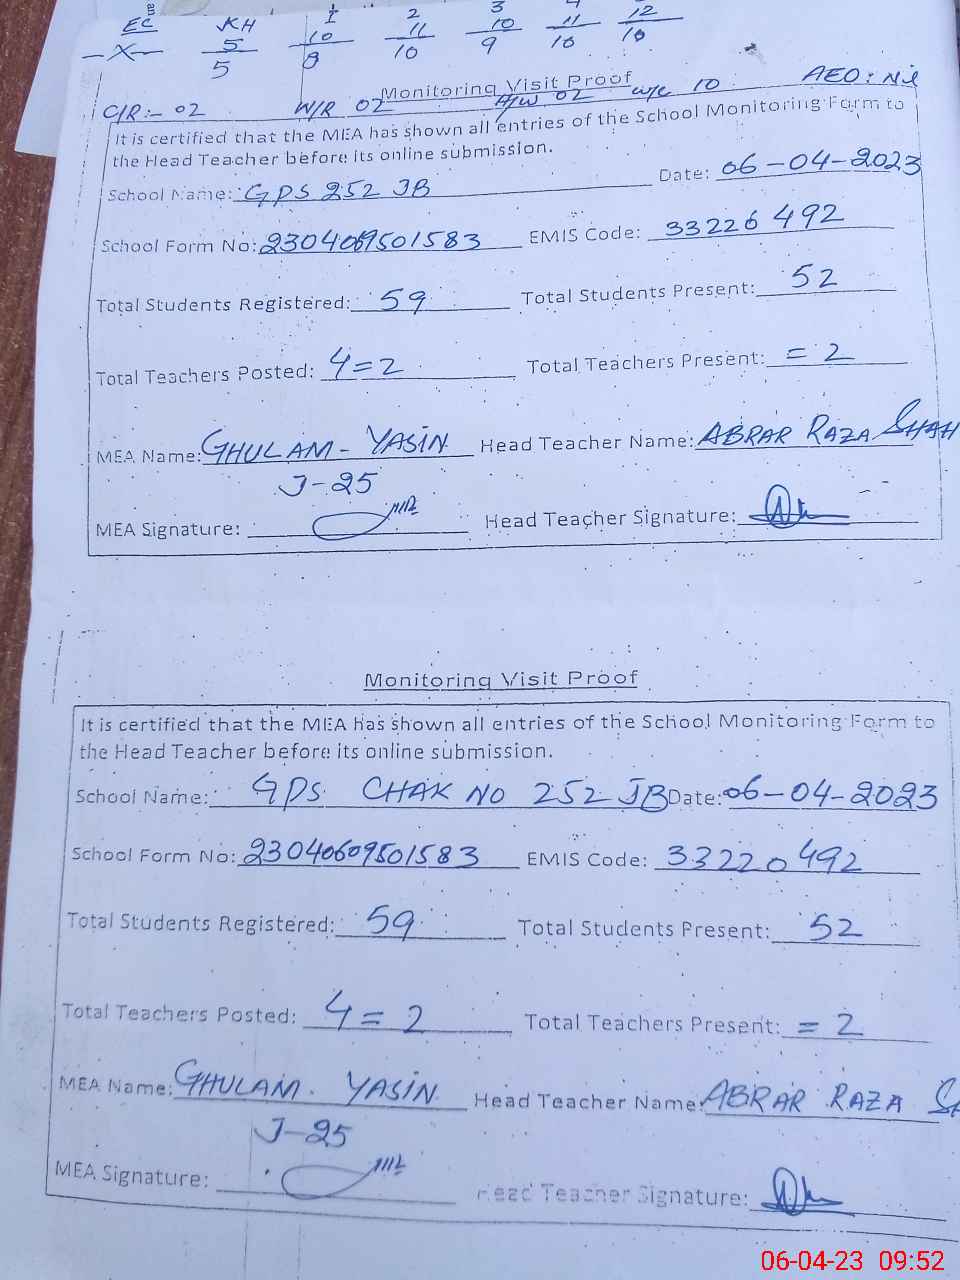 EC KH 1 2 3 4
-X- 5 10 11 10 11 12
5 8 10 9 10 10
Monitoring Visit Proof
C/R:- 02 W/R 02 H/W 02 W/C 10 AEO: Nil
It is certified that the MEA has shown all entries of the School Monitoring Form to
the Head Teacher before its online submission.
School Name: GPS 252 JB Date: 06-04-2023
School Form No: 2304069501583 EMIS Code: 33220492
Total Students Registered: 59 Total Students Present: 52
Total Teachers Posted: 4=2 Total Teachers Present: = 2
MEA Name: GHULAM-YASIN Head Teacher Name: ABRAR RAZA SHAH
J-25
MEA Signature: Head Teacher Signature:
Monitoring Visit Proof
It is certified that the MEA has shown all entries of the School Monitoring Form to
the Head Teacher before its online submission.
School Name: GPS CHAK NO 252 JB Date: 06-04-2023
School Form No: 23040609501583 EMIS Code: 33220492
Total Students Registered: 59 Total Students Present: 52
Total Teachers Posted: 4=2 Total Teachers Present: = 2
MEA Name: GHULAM. YASIN Head Teacher Name: ABRAR RAZA
J-25
MEA Signature: Head Teacher Signature:
06-04-23 09:52